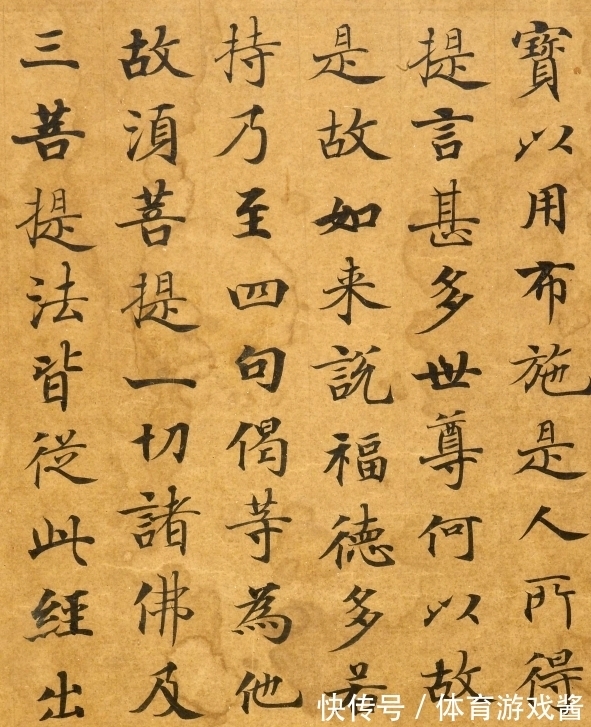 寶以用布施是人所得
提言甚多世尊何以故
是故如来說福德多若
持乃至四句偈等為他
故湏菩提一切諸佛及
三菩提法皆從此經出
快传号 / 体育游戏酱